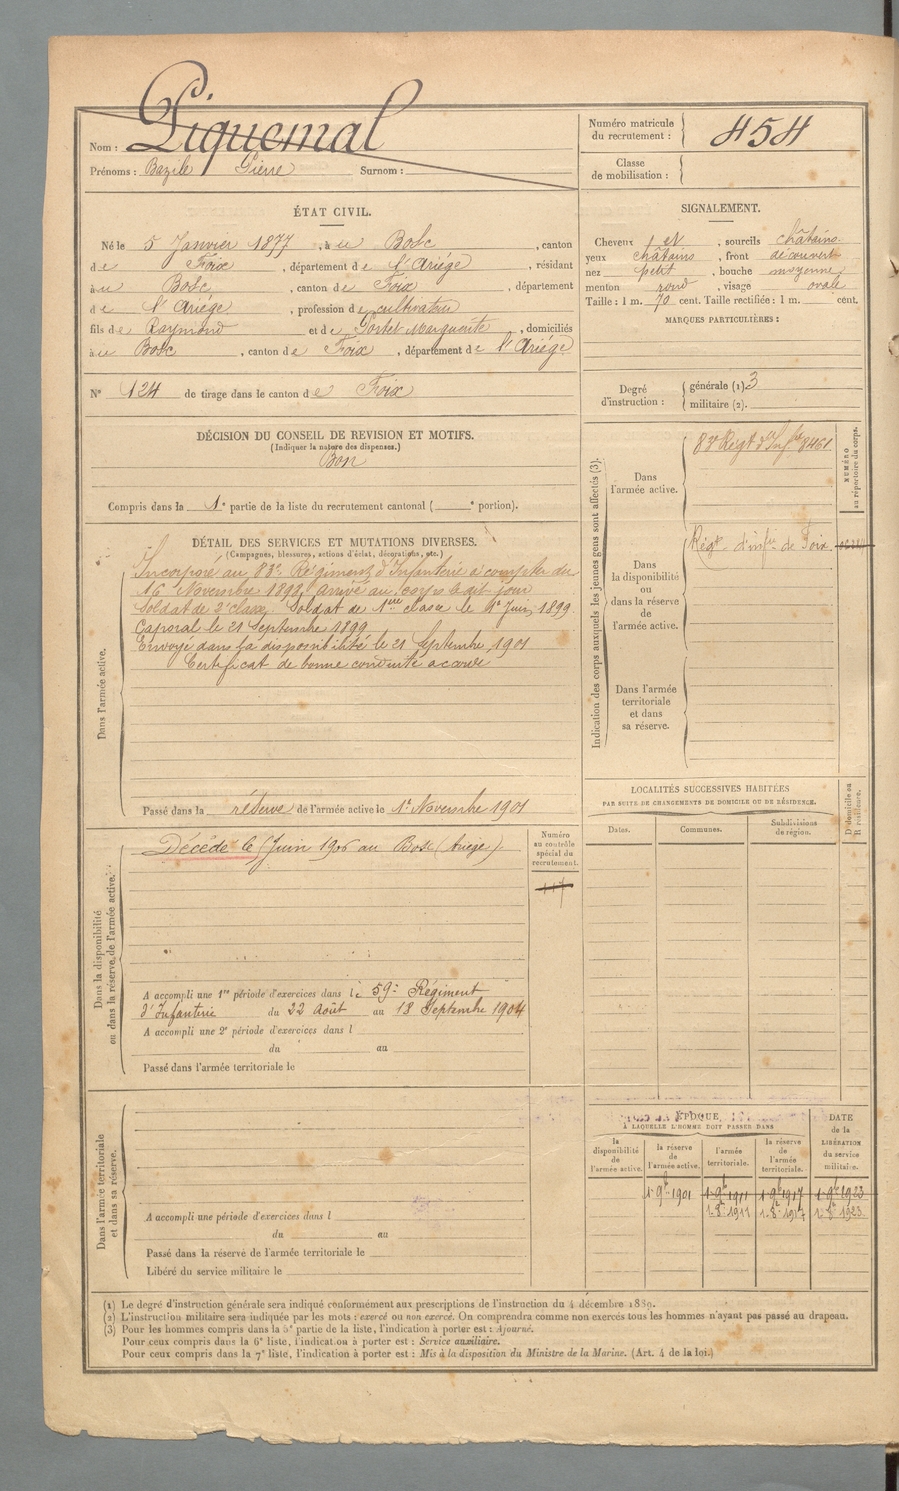 Nom : Piquemal
Prénoms : Bazile Pierre Surnom :
Numéro matricule du recrutement : 454
Classe de mobilisation :
ÉTAT CIVIL.
Né le 5 Janvier 1877, à u Bosc, canton
de Foix, département de l'Ariége, résidant
à u Bosc, canton de Foix, département
de l'Ariége, profession de cultivateur
fils de Raymond et de Portet Marguerite, domiciliés
à u Bosc, canton de Foix, département de l'Ariége
N° 124 de tirage dans le canton de Foix
SIGNALEMENT.
Cheveux et, sourcils châtains
yeux châtains, front découvert
nez petit, bouche moyenne
menton rond, visage ovale
Taille : 1 m. 70 cent. Taille rectifiée : 1 m. cent.
MARQUES PARTICULIÈRES :
Degré d'instruction : générale (1). 3
militaire (2).
DÉCISION DU CONSEIL DE REVISION ET MOTIFS.
(Indiquer la nature des dispenses.)
Bon
Compris dans la 1e partie de la liste du recrutement cantonal ( e portion).
DÉTAIL DES SERVICES ET MUTATIONS DIVERSES.
(Campagnes, blessures, actions d'éclat, décorations, etc.)
Dans l'armée active.
Incorporé au 83e Régiment d'Infanterie à compter du
16 Novembre 1898, arrivé au corps le dit jour
Soldat de 2e classe. Soldat de 1ere classe le 1er Juin 1899
Caporal le 21 Septembre 1899
Envoyé dans la disponibilité le 21 Septembre 1901
Certificat de bonne conduite accordé
Passé dans la réserve de l'armée active le 1er Novembre 1901
Indication des corps auxquels les jeunes gens sont affectés (3).
NUMÉRO au répertoire du corps.
Dans l'armée active.
83e Régt d'Inf.ie 8461
Dans la disponibilité ou dans la réserve de l'armée active.
Régt d'infie de Foix
Dans l'armée territoriale et dans sa réserve.
LOCALITÉS SUCCESSIVES HABITÉES
PAR SUITE DE CHANGEMENTS DE DOMICILE OU DE RÉSIDENCE.
Dates. Communes. Subdivisions de région.
D domicile ou R résidence.
Dans la disponibilité ou dans la réserve de l'armée active.
Numéro au contrôle spécial du recrutement.
Décédé le Juin 1906 au Bosc (Ariège).
A accompli une 1re période d'exercices dans le 59e Régiment
d'Infanterie du 22 Août au 18 Septembre 1904
A accompli une 2e période d'exercices dans l
du au
Passé dans l'armée territoriale le
Dans l'armée territoriale et dans sa réserve.
A accompli une période d'exercices dans l
du au
Passé dans la réserve de l'armée territoriale le
Libéré du service militaire le
ÉPOQUE
À LAQUELLE L'HOMME DOIT PASSER DANS
la disponibilité de l'armée active.
la réserve de l'armée active.
l'armée territoriale.
la réserve de l'armée territoriale.
DATE de la LIBÉRATION du service militaire.
1.9bre 1901 1.9bre 1911 1.9bre 1917 1.9bre 1923
1.8bre 1911 1.8bre 1917 1.8bre 1923
(1) Le degré d'instruction générale sera indiqué conformément aux prescriptions de l'instruction du 4 décembre 1889.
(2) L'instruction militaire sera indiquée par les mots : exercé ou non exercé. On comprendra comme non exercés tous les hommes n'ayant pas passé au drapeau.
(3) Pour les hommes compris dans la 5e partie de la liste, l'indication à porter est : Ajourné.
Pour ceux compris dans la 6e liste, l'indication à porter est : Service auxiliaire.
Pour ceux compris dans la 7e liste, l'indication à porter est : Mis à la disposition du Ministre de la Marine. (Art. 4 de la loi.)